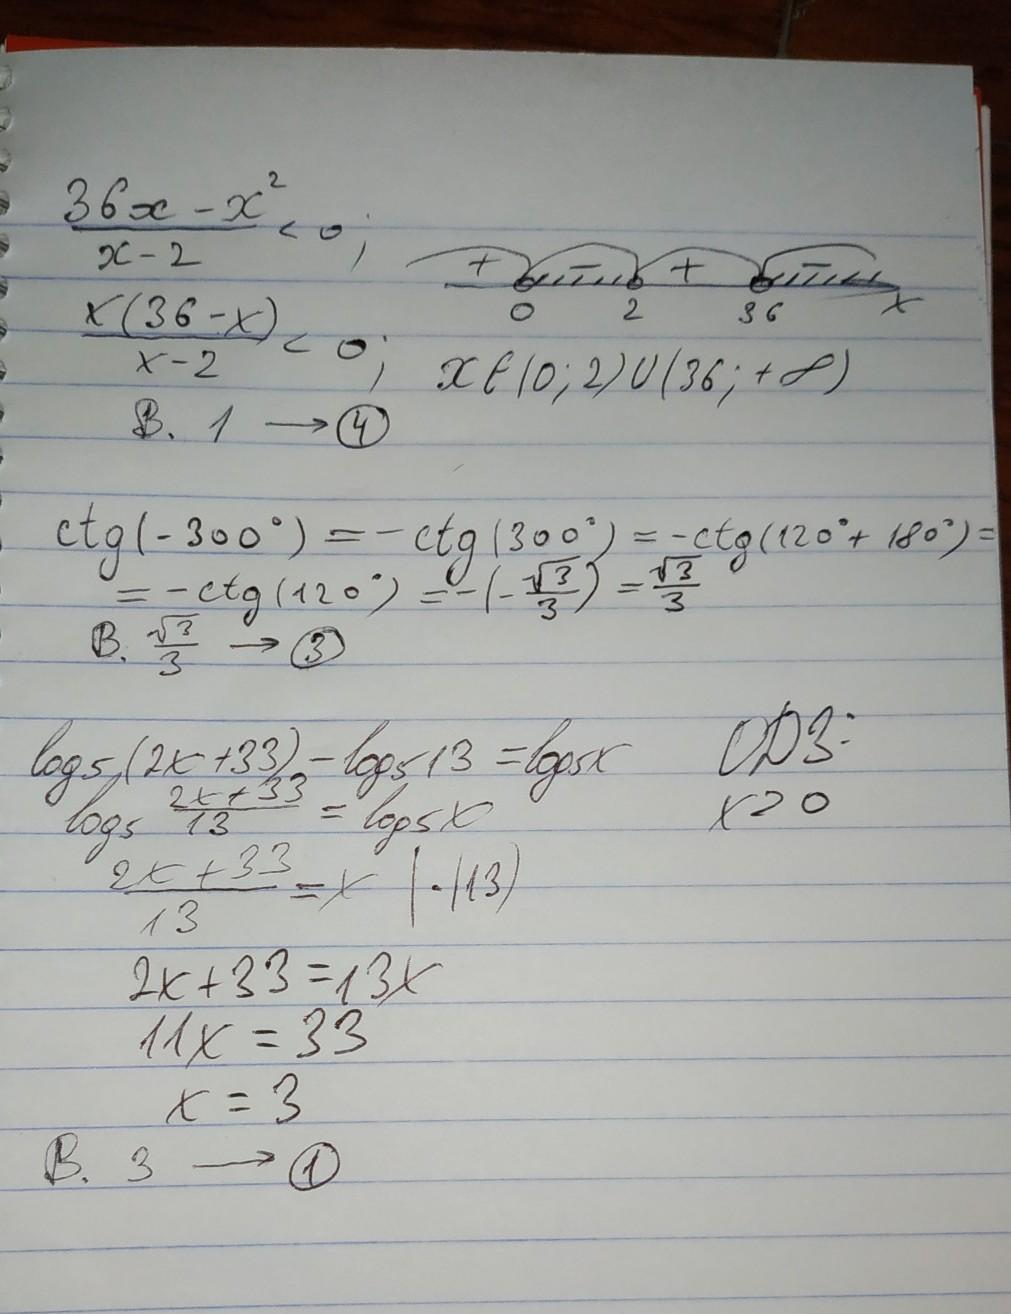 36x - x² / x - 2 < 0;
+ - + -
0 2 36 x
x(36 - x) / x - 2 < 0;
x ∈ (0; 2) ∪ (36; +∞)
B. 1 → ④
ctg(-300°) = -ctg(300°) = -ctg(120° + 180°) =
= -ctg(120°) = -(-√3/3) = √3/3
B. √3/3 → ③
log₅(2x+33) - log₅13 = log₅x
ОДЗ:
log₅ 2x+33 / 13 = log₅x
x > 0
2x+33 / 13 = x | · (13)
2x+33 = 13x
11x = 33
x = 3
B. 3 → ①